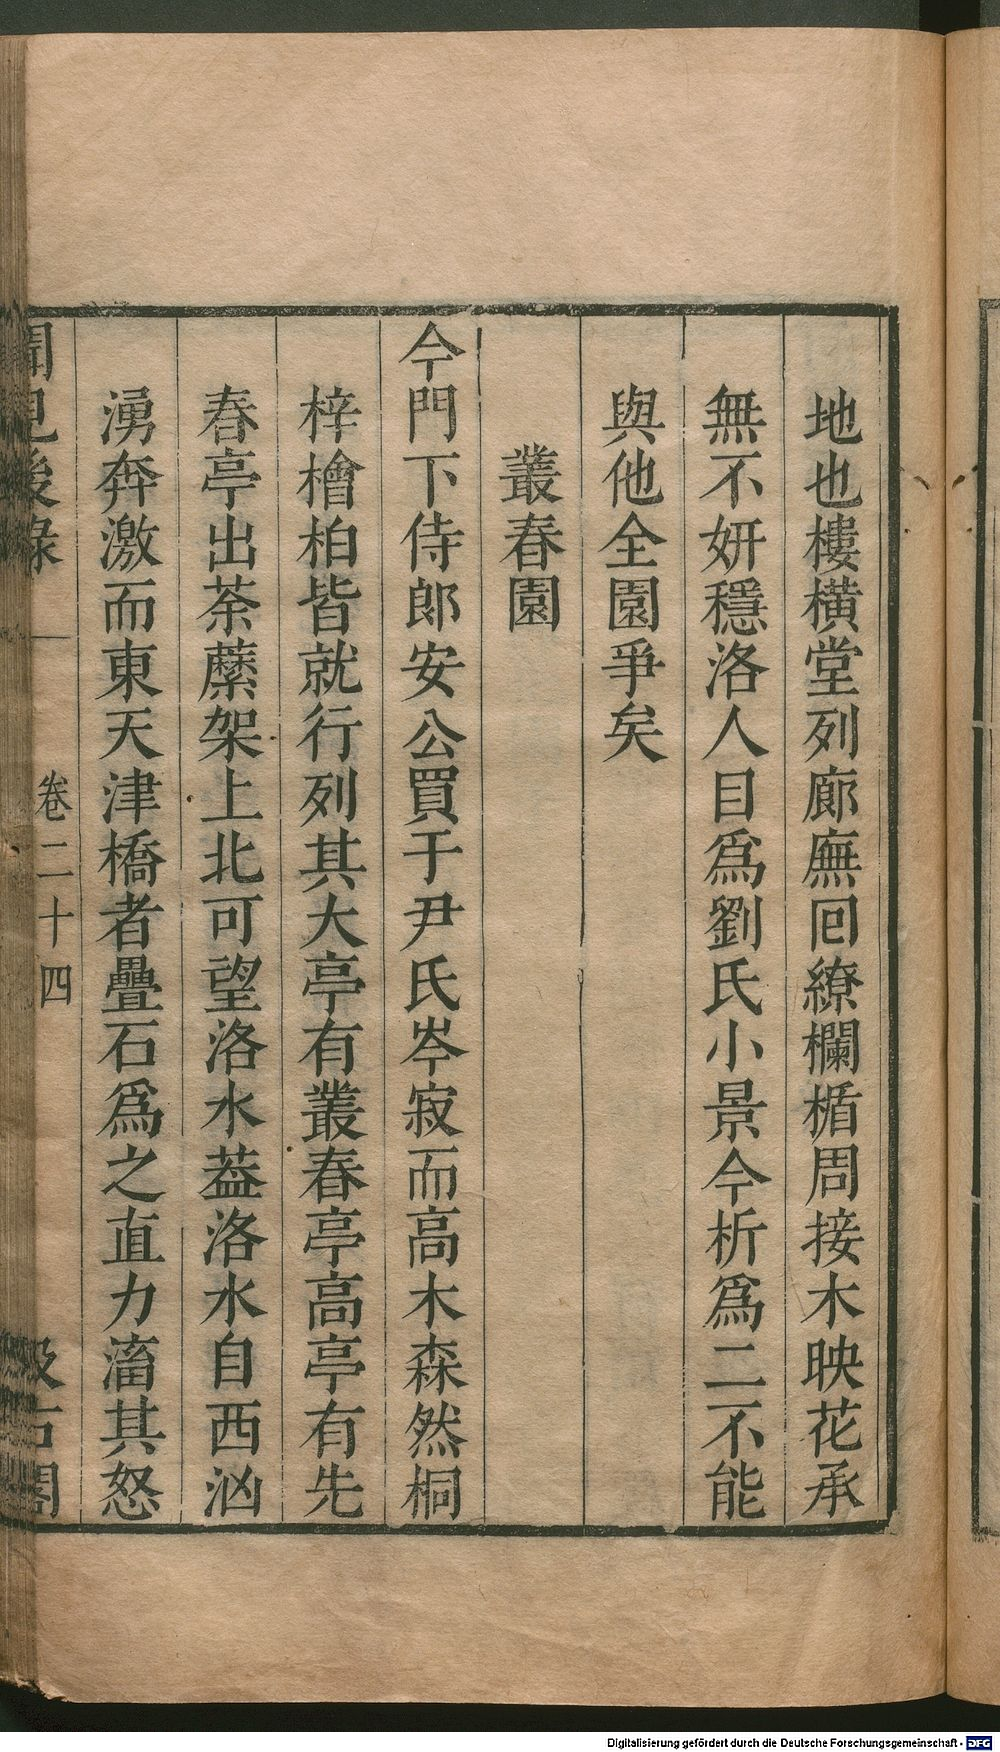 地也樓橫堂列廊廡囘繚欄楯周接木映花承
無不妍穩洛人目爲劉氏小景今析爲二不能
與他全園爭矣
叢春園
今門下侍郎安公買于尹氏岑寂而高木森然桐
梓檜柏皆就行列其大亭有叢春亭高亭有先
春亭出荼蘼架上北可望洛水葢洛水自西汹
湧奔激而東天津橋者疊石爲之直力滀其怒
聞見後錄
卷二十四
汲古閣
Digitalisierung gefördert durch die Deutsche Forschungsgemeinschaft - DFG